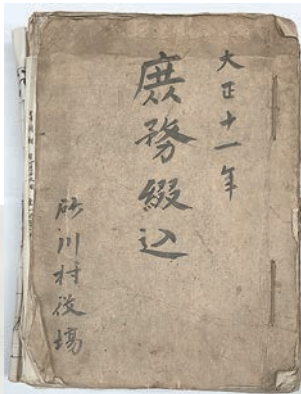 大正十一年
庶務綴込
砂川村役場